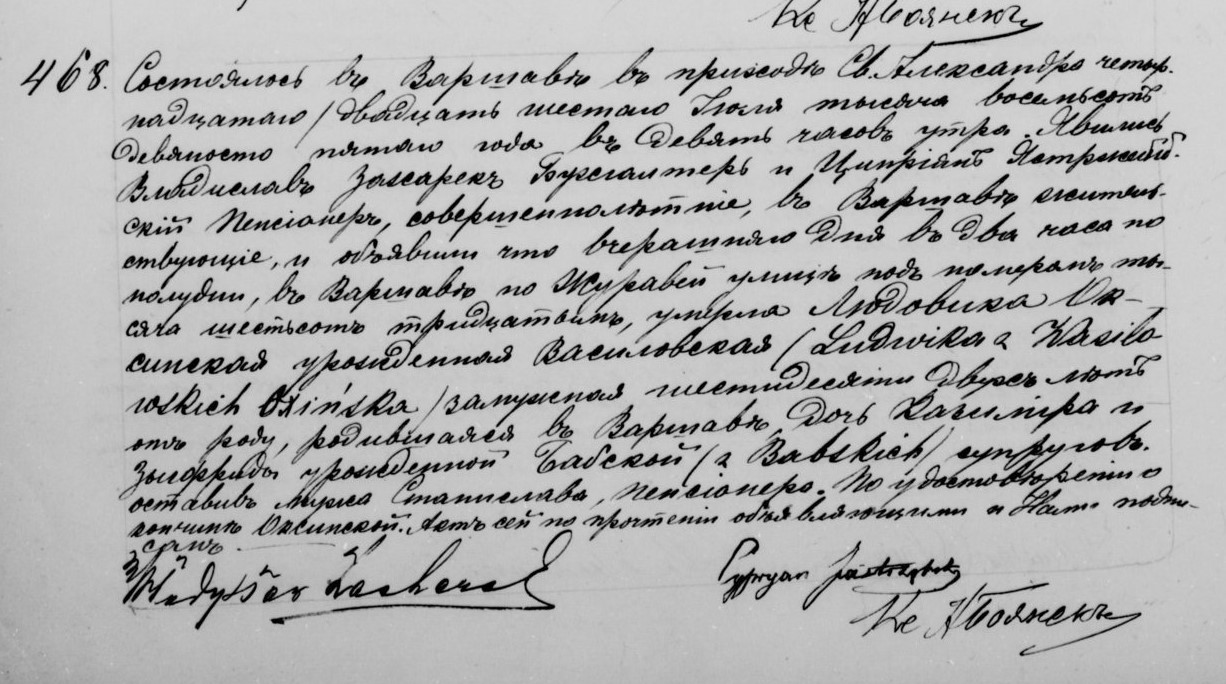 Кс А Боянекъ
468. Состоялось въ Варшавѣ въ приходѣ Св. Александра четыр-
надцатаго / двадцать шестаго Іюля тысяча восемьсотъ
девяносто пятаго года въ девять часовъ утра. Явились
Владиславъ Захарекъ Бухгалтеръ и Ципріянъ Ястржемб-
скій Пенсіонеръ, совершеннолѣтніе, въ Варшавѣ житель-
ствующіе, и объявили что вчерашняго дня въ два часа по
полудни, въ Варшавѣ по Журавей улицѣ подъ номеромъ ты-
сяча шестьсотъ тридцатымъ, умерла Людовика Ок-
синская урожденная Василовская / Ludwika z Wasilo
wskich Oxińska / замужная шестидесяти двухъ лѣтъ
отъ роду, родившаяся въ Варшавѣ, дочь Казиміра и
урожденной Бабской / z Babskich / супруговъ.
оставивъ мужа Станислава, пенсіонера. По удостовѣреніи о
кончинѣ Оксинской. Актъ сей по прочтеніи объявляющими и Нами подпи-
санъ
Władysław Zacharek
Cypryan Jastrzębski
Кс А Боянекъ